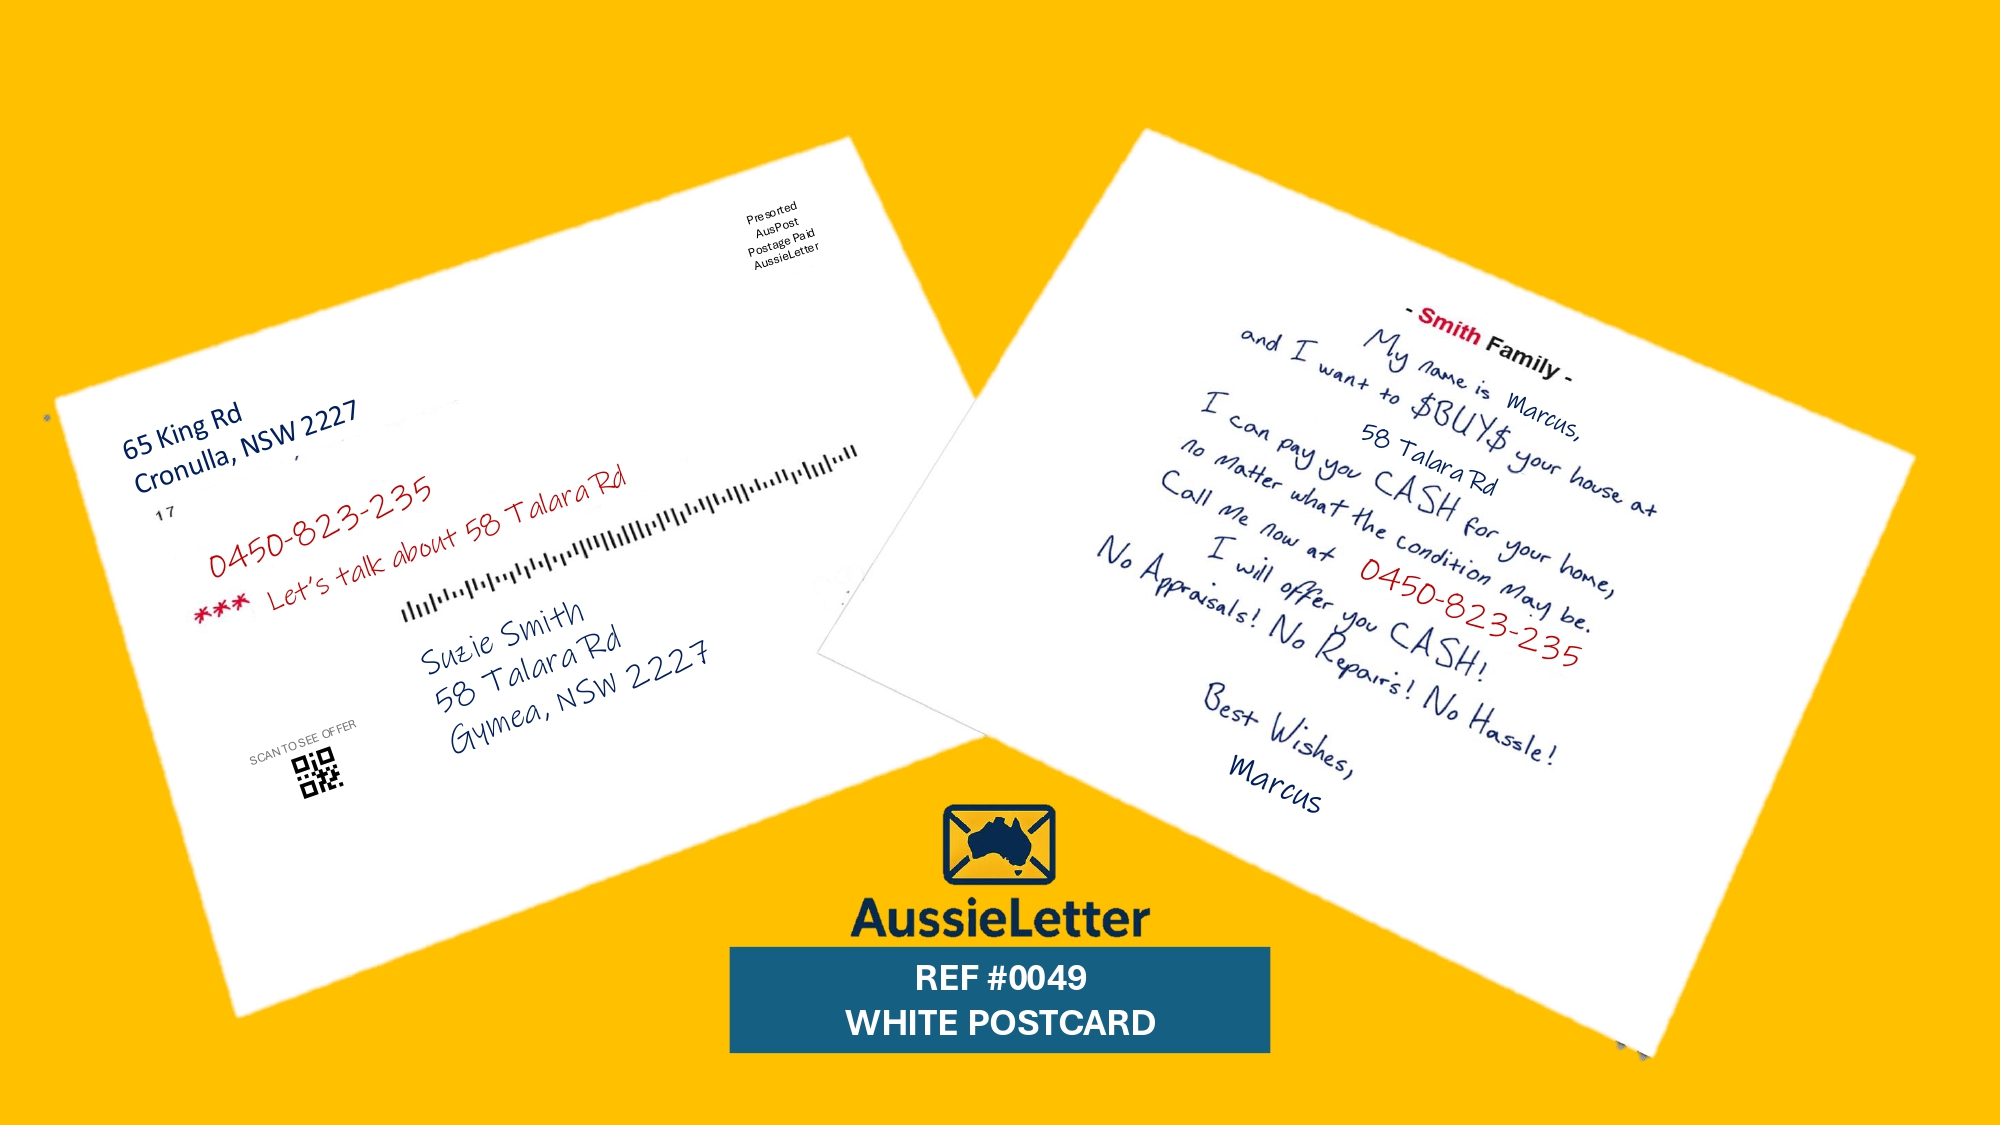 Presorted
AusPost
Postage Paid
AussieLetter
65 King Rd
Cronulla, NSW 2227
17
0450-823-235
*** Let's talk about 58 Talara Rd
Suzie Smith
58 Talara Rd
Gymea, NSW 2227
SCAN TO SEE OFFER
- Smith Family -
My name is Marcus,
and I want to $BUY$ your house at
58 Talara Rd
I can pay you CASH for your home,
no matter what the condition may be.
Call me now at 0450-823-235
I will offer you CASH!
No Appraisals! No Repairs! No Hassle!
Best Wishes,
Marcus
AussieLetter
REF #0049
WHITE POSTCARD